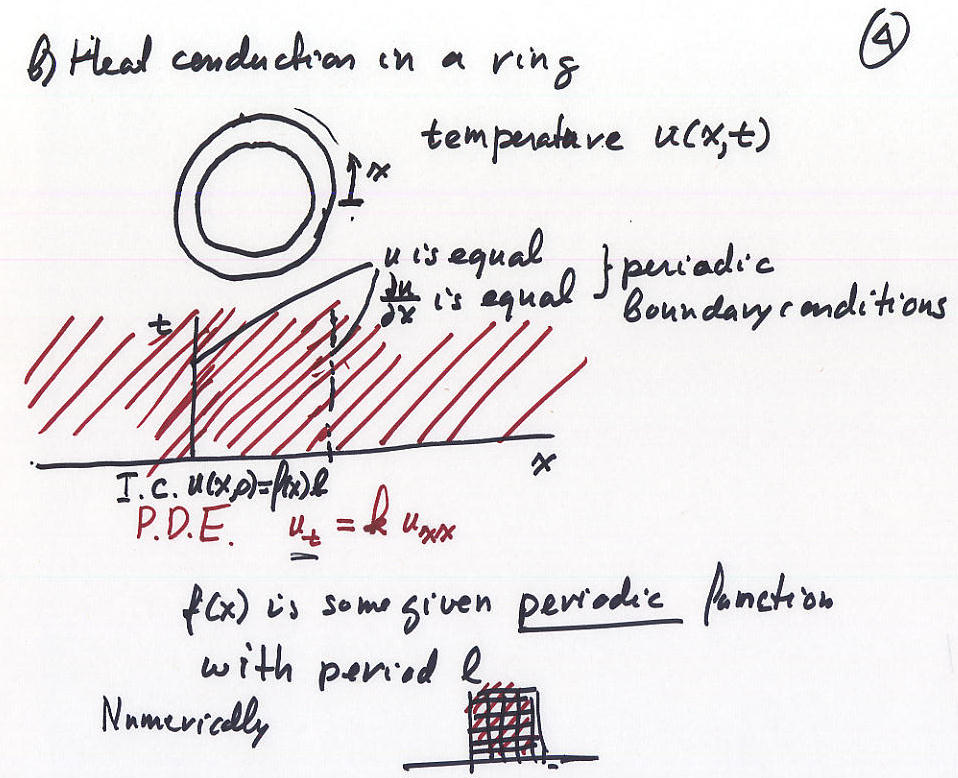 ④
b) Heat conduction in a ring
temperature u(x,t)
x
u is equal
∂u/∂x is equal } periodic boundary conditions
t
x
I.C. u(x,0)=f(x) l
P.D.E. u_t = k u_xx
f(x) is some given periodic function
with period l
Numerically